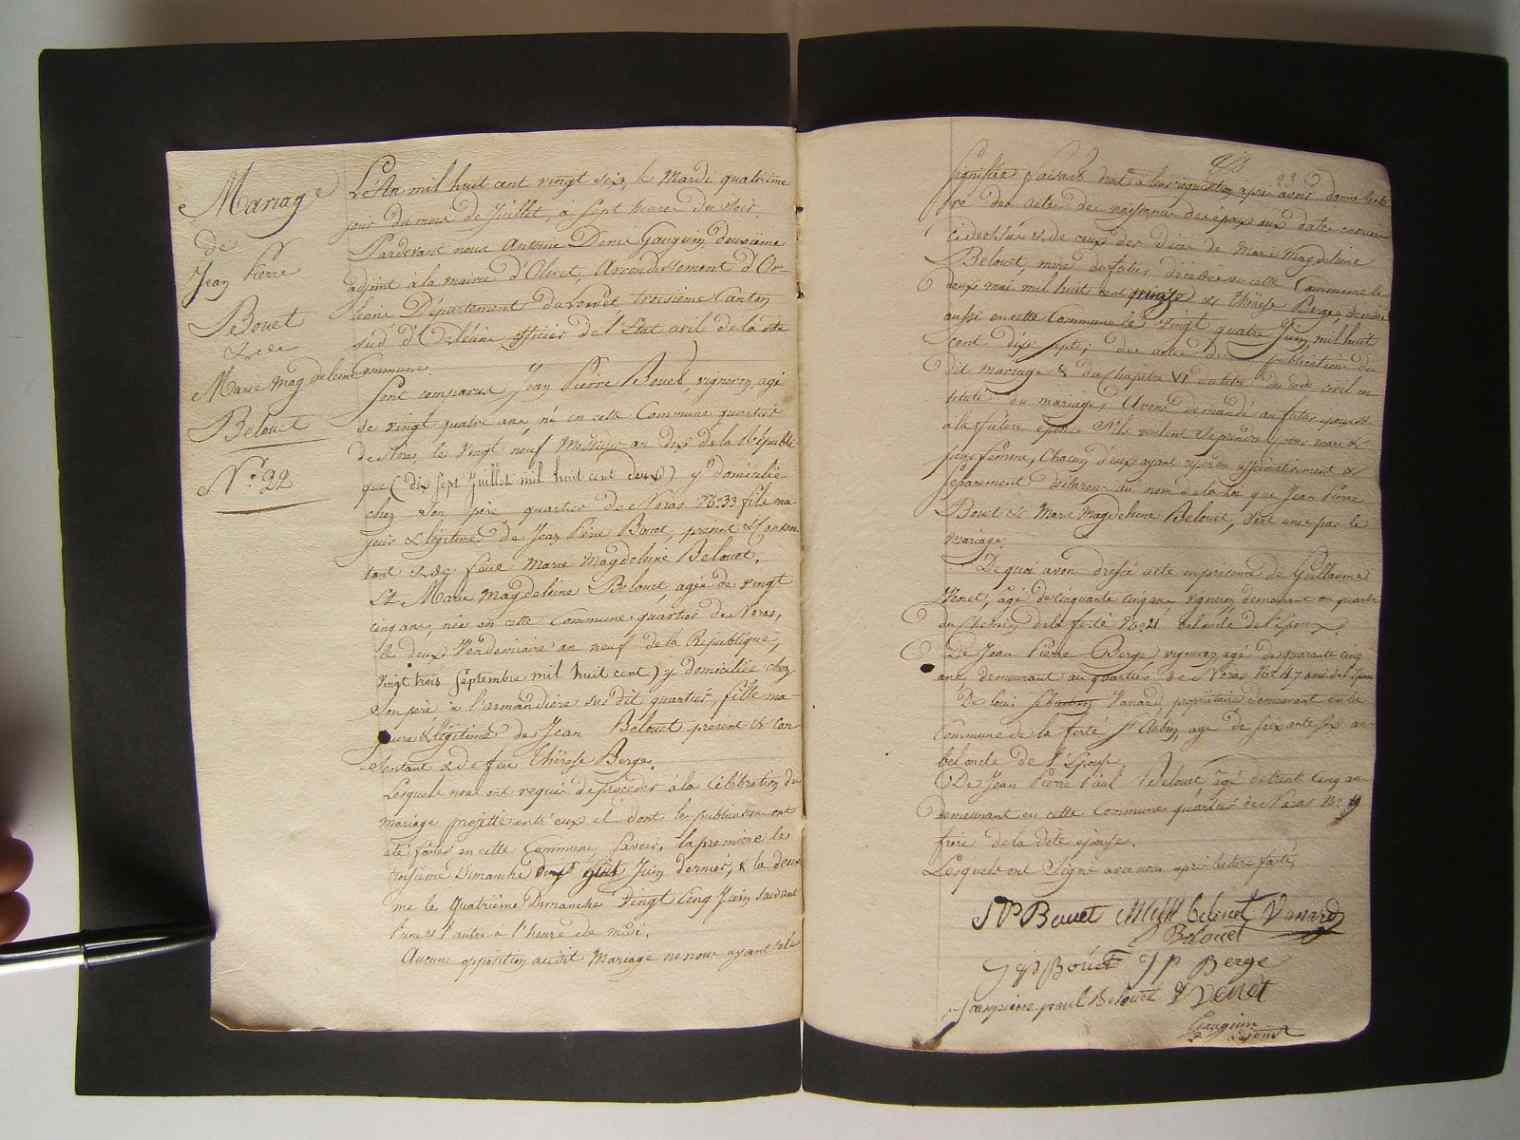 Mariage
de
Jean Pierre
Bouet
& de
Marie Magdeleine
Belouet
N.º 22
L'An mil huit cent vingt six, le Mardi quatrième
jour du mois de Juillet, à Sept heures du Soir.
Pardevant nous Antoine Denis Gauguin, deuxième
adjoint à la mairie d'Olivet, Arrondissement d'Or-
léans Département du Loiret troisième Canton
sud d'Orléans officier de l'Etat civil de la dite
Commune
Sont comparus, Jean Pierre Bouet, vigneron, agé
de vingt quatre ans, né en cette Commune quartier
de Noras, le vingt neuf Messidor an dix de la Républi
que (dix sept Juillet mil huit cent deux) y domicilié
chez son père quartier de Noras N.º 33 fils ma-
jeur & légitime de Jean Pierre Bouet, présent & consen-
tant & de feue Marie Magdeleine Belouet.
Et Marie Magdeleine Belouet, agée de vingt
cinq ans, née en cette Commune, quartier de Noras,
le deux Vendemiaire an neuf de la République,
vingt trois Septembre mil huit cent) y domiciliée chez
son père à l'armandière susdit quartier, fille ma-
jeure & légitime de Jean Belouet présent & con
sentant & de feue Thérèse Berge.
Lesquels nous ont requis de procéder à la Célébration du
mariage projetté entr'eux et dont les publications ont
été faites en cette Commune, Savoir, la première le
troisième Dimanche dix huit Juin dernier, & la deux
me le Quatrième Dimanche Vingt Cinq Juin suivant
l'une & l'autre à l'heure de midi.
Aucune opposition audit Mariage ne nous ayant été
signifiée faisant droit à leur requisition, après avoir donné lectu
re des actes de naissance des époux aux dates
ci dessus & de ceux des décès de Marie Magdeleine
Belouet, mère du futur, décédée en cette Commune le
deux mai mil huit cent quinze & Thérèse Berge, décédée
aussi en cette Commune le vingt quatre Juin mil huit
cent dix sept; des actes de publications du
dit mariage & du Chapitre VI du titre du code civil in
titulé du mariage, Avons demandé au futur époux &
à la future épouse s'ils veulent se prendre pour mari &
pour femme, Chacun d'eux ayant répondu affirmativement &
séparément déclarons au nom de la loi que Jean Pierre
Bouet & Marie Magdeleine Belouet, sont unis par le
mariage.
De quoi avons dressé acte en présence de Guillaume
Venet, agé de cinquante cinq ans, vigneron demeurant au quartier
du Chemin de la ferté N.º 21 bel oncle de l'époux.
De Jean Pierre Berge, vigneron, agé de quarante cinq
ans, demeurant au quartier de Noras N.º 47 ami de l'époux
De Louis Sébastien Vanard propriétaire demeurant en la
Commune de la ferté St Aubin, agé de soixante six ans
bel oncle de l'Epouse.
De Jean Pierre Paul Belouet agé de trente cinq ans
demeurant en cette Commune quartier de Noras N.º
frère de la dite épouse.
Lesquels ont Signé avec nous après lecture faite,
J P Bouet M M belouet Vanard
Belouet
J p Bouet J P Berge
jean pierre paul Belouet G Venet
Gauguin
adjoint